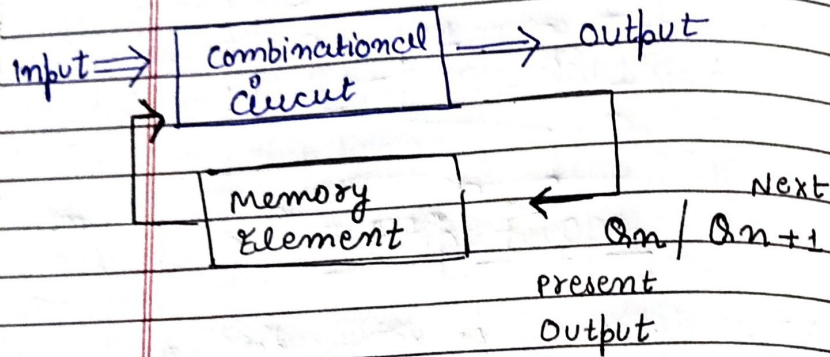 Input ⇒ Combinational ⇒ Output
Circuit
Memory
Element
Next
Qn / Qn+1
Present
Output